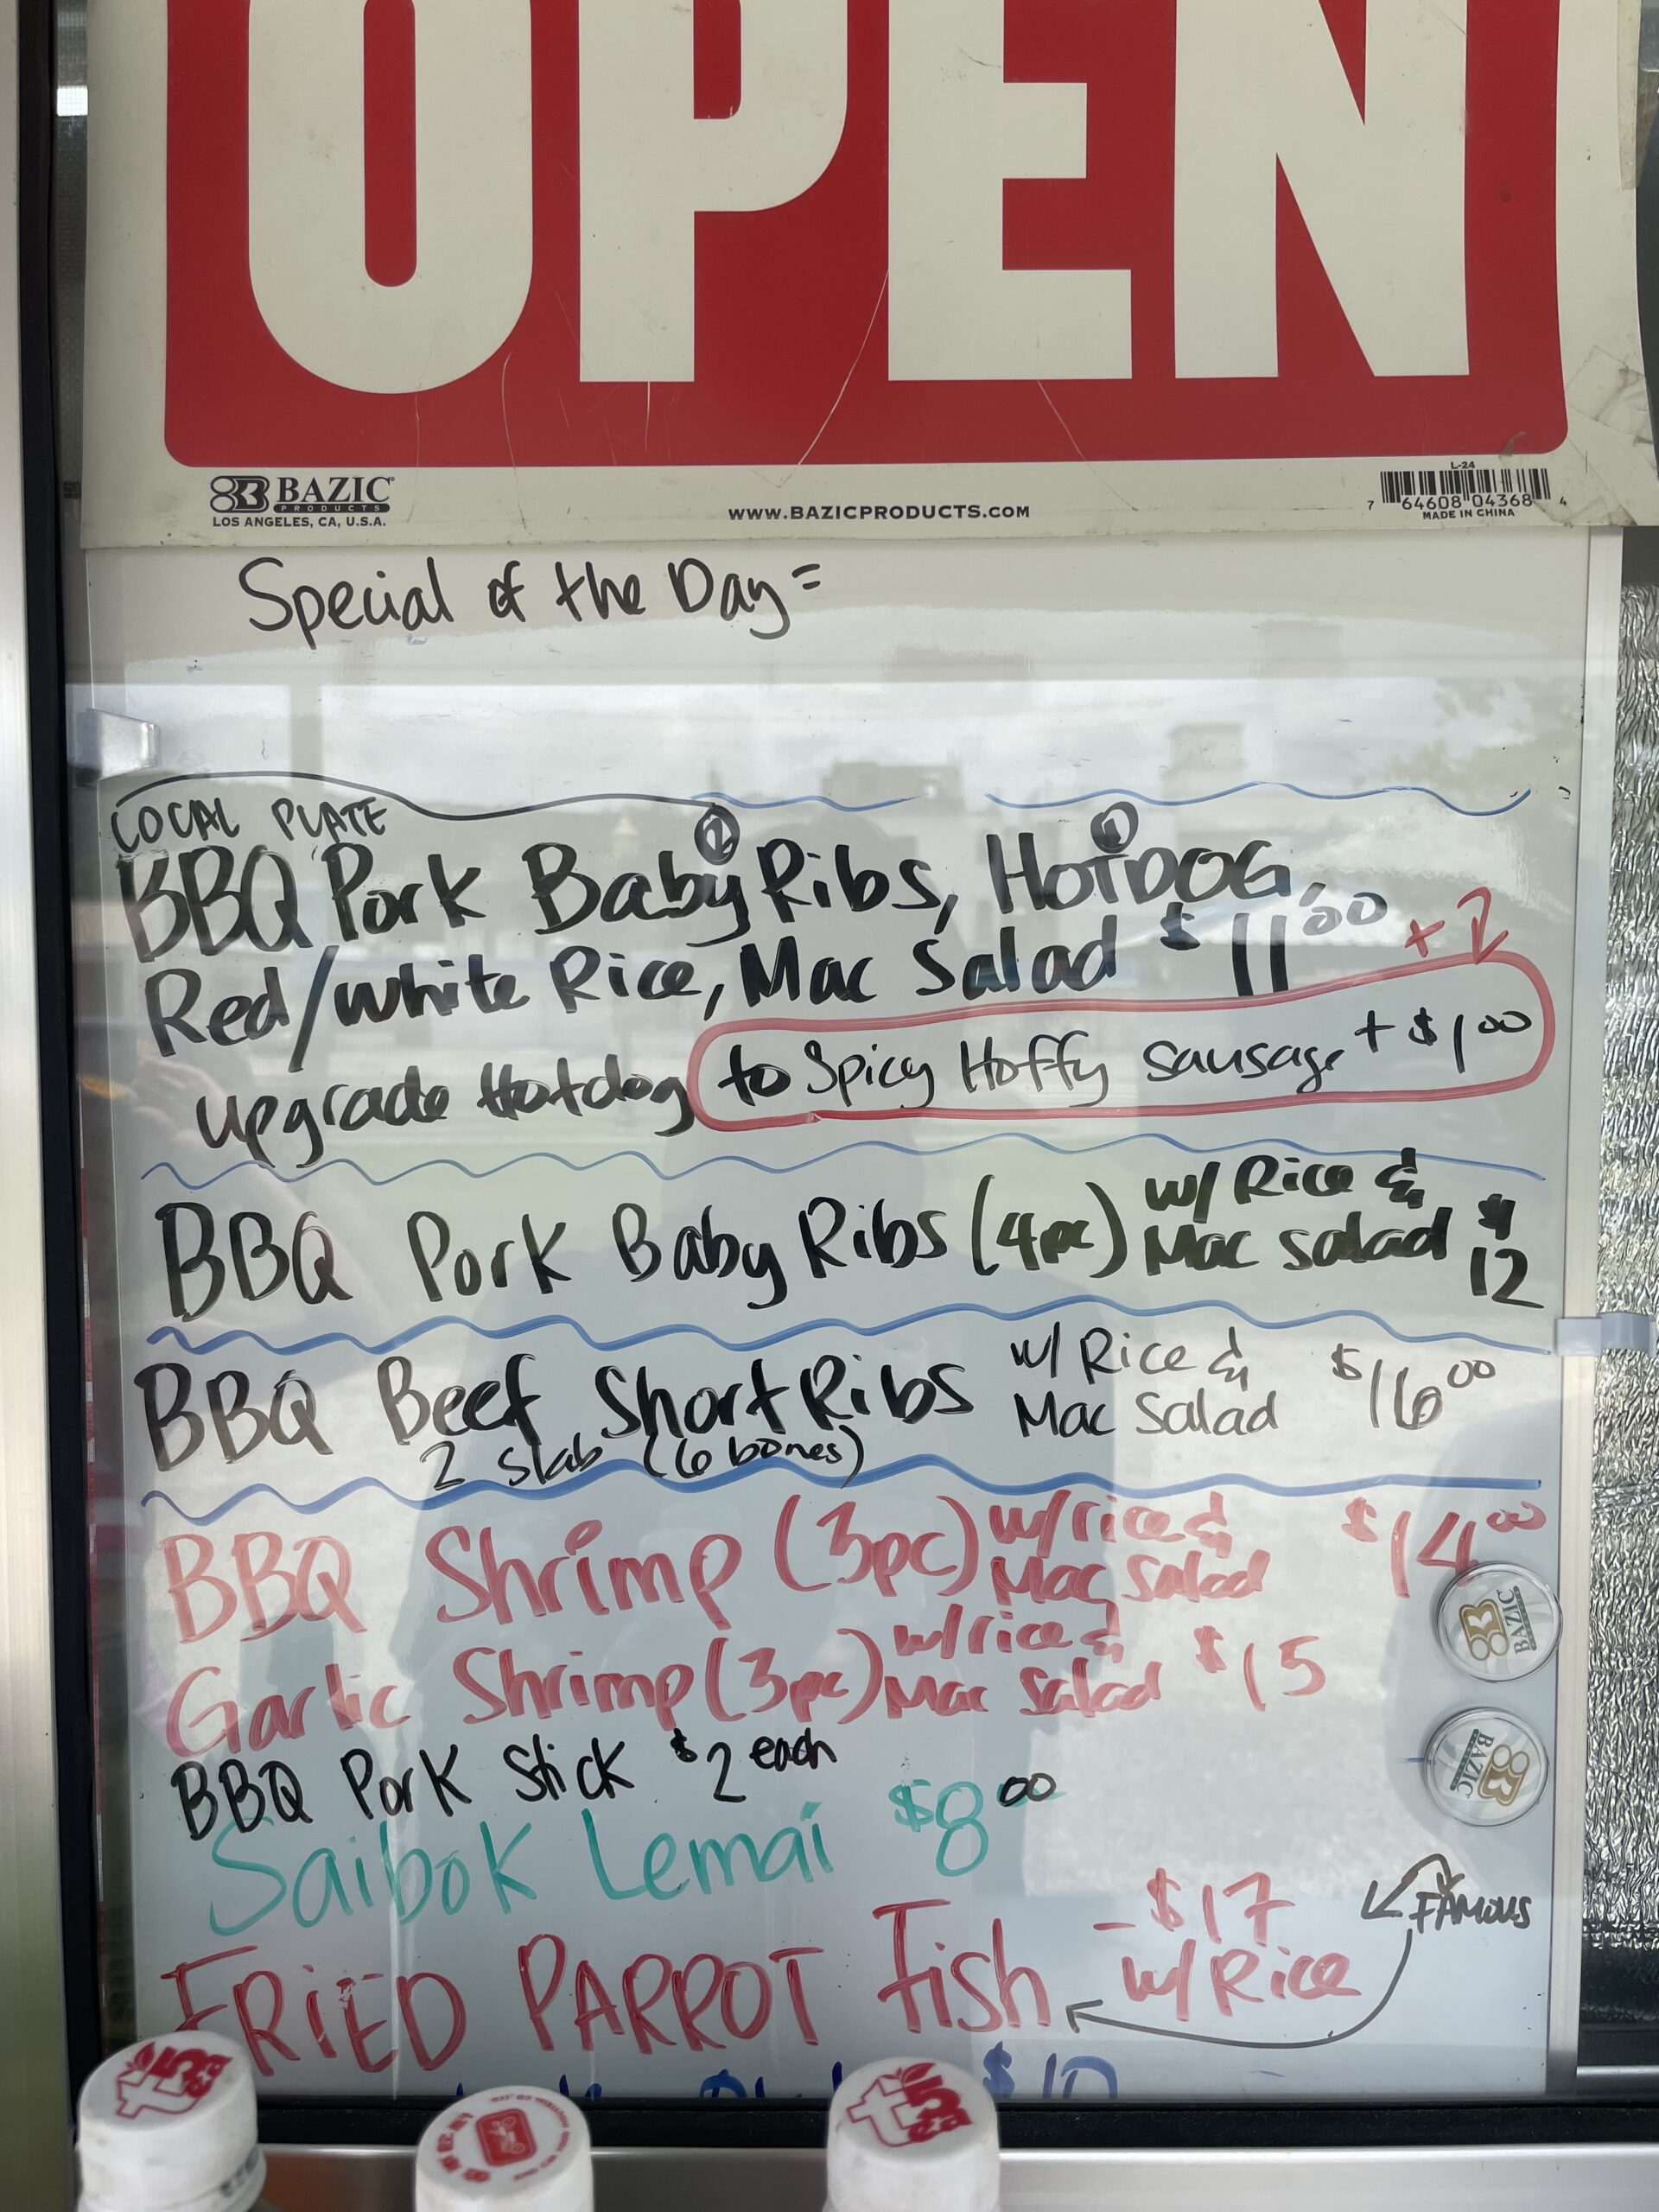 OPEN
BAZIC
PRODUCTS
LOS ANGELES, CA, U.S.A.
WWW.BAZICPRODUCTS.COM
L-24
7 64608 04368 4
MADE IN CHINA
Special of the Day =
LOCAL PLATE
BBQ Pork Baby ② Ribs, HOTDOG ①,
Red/white Rice, Mac Salad $11.00 + 2
upgrade Hotdog to Spicy Hoffy Sausage + $1.00
BBQ Pork Baby Ribs (4pc) w/ Rice & Mac Salad $12
BBQ Beef Short Ribs w/ Rice & Mac Salad $16.00
2 slab (6 bones)
BBQ Shrimp (3pc) w/ rice & Mac Salad $14.00
Garlic Shrimp (3pc) w/ rice & Mac Salad $15
BBQ Pork Stick $2 each
Saibok Lemai $8.00
FRIED PARROT Fish - $17 w/ Rice
FAMOUS
$10
BAZIC
BAZIC
t5
ea
t5
ea